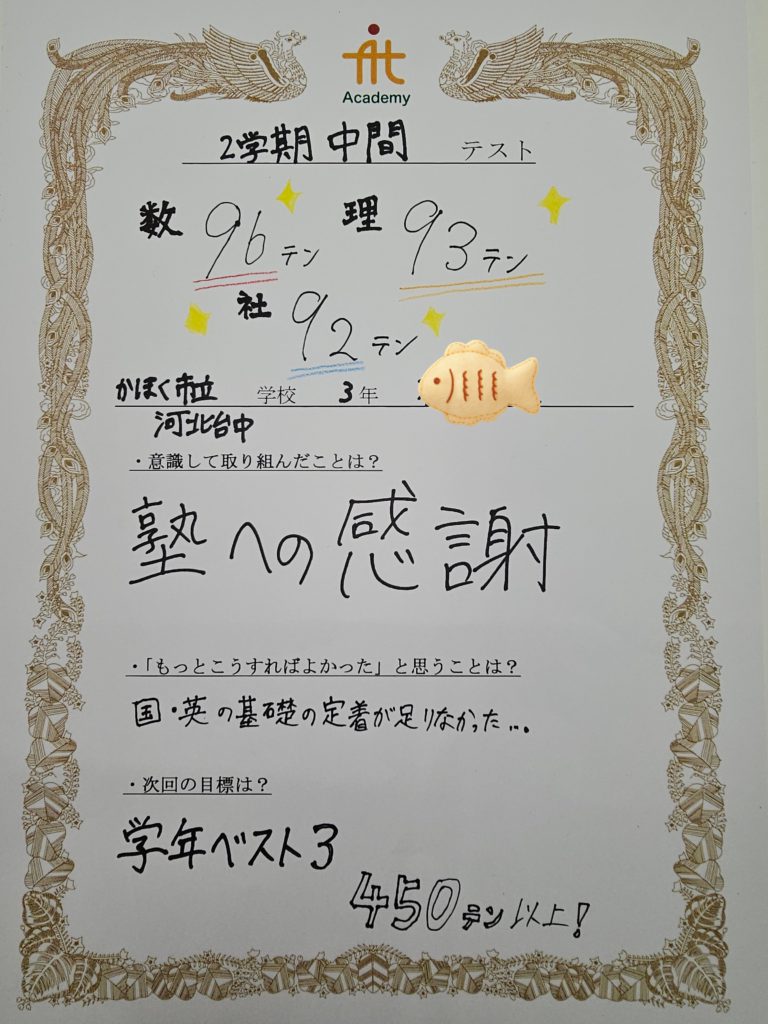 fit
Academy
2学期 中間 テスト
数 96テン 理 93テン
社 92テン
かほく市立 学校 3年
河北台中
・意識して取り組んだことは？
塾への感謝
・「もっとこうすればよかった」と思うことは？
国・英の基礎の定着が足りなかった...
・次回の目標は？
学年ベスト3
450テン以上!